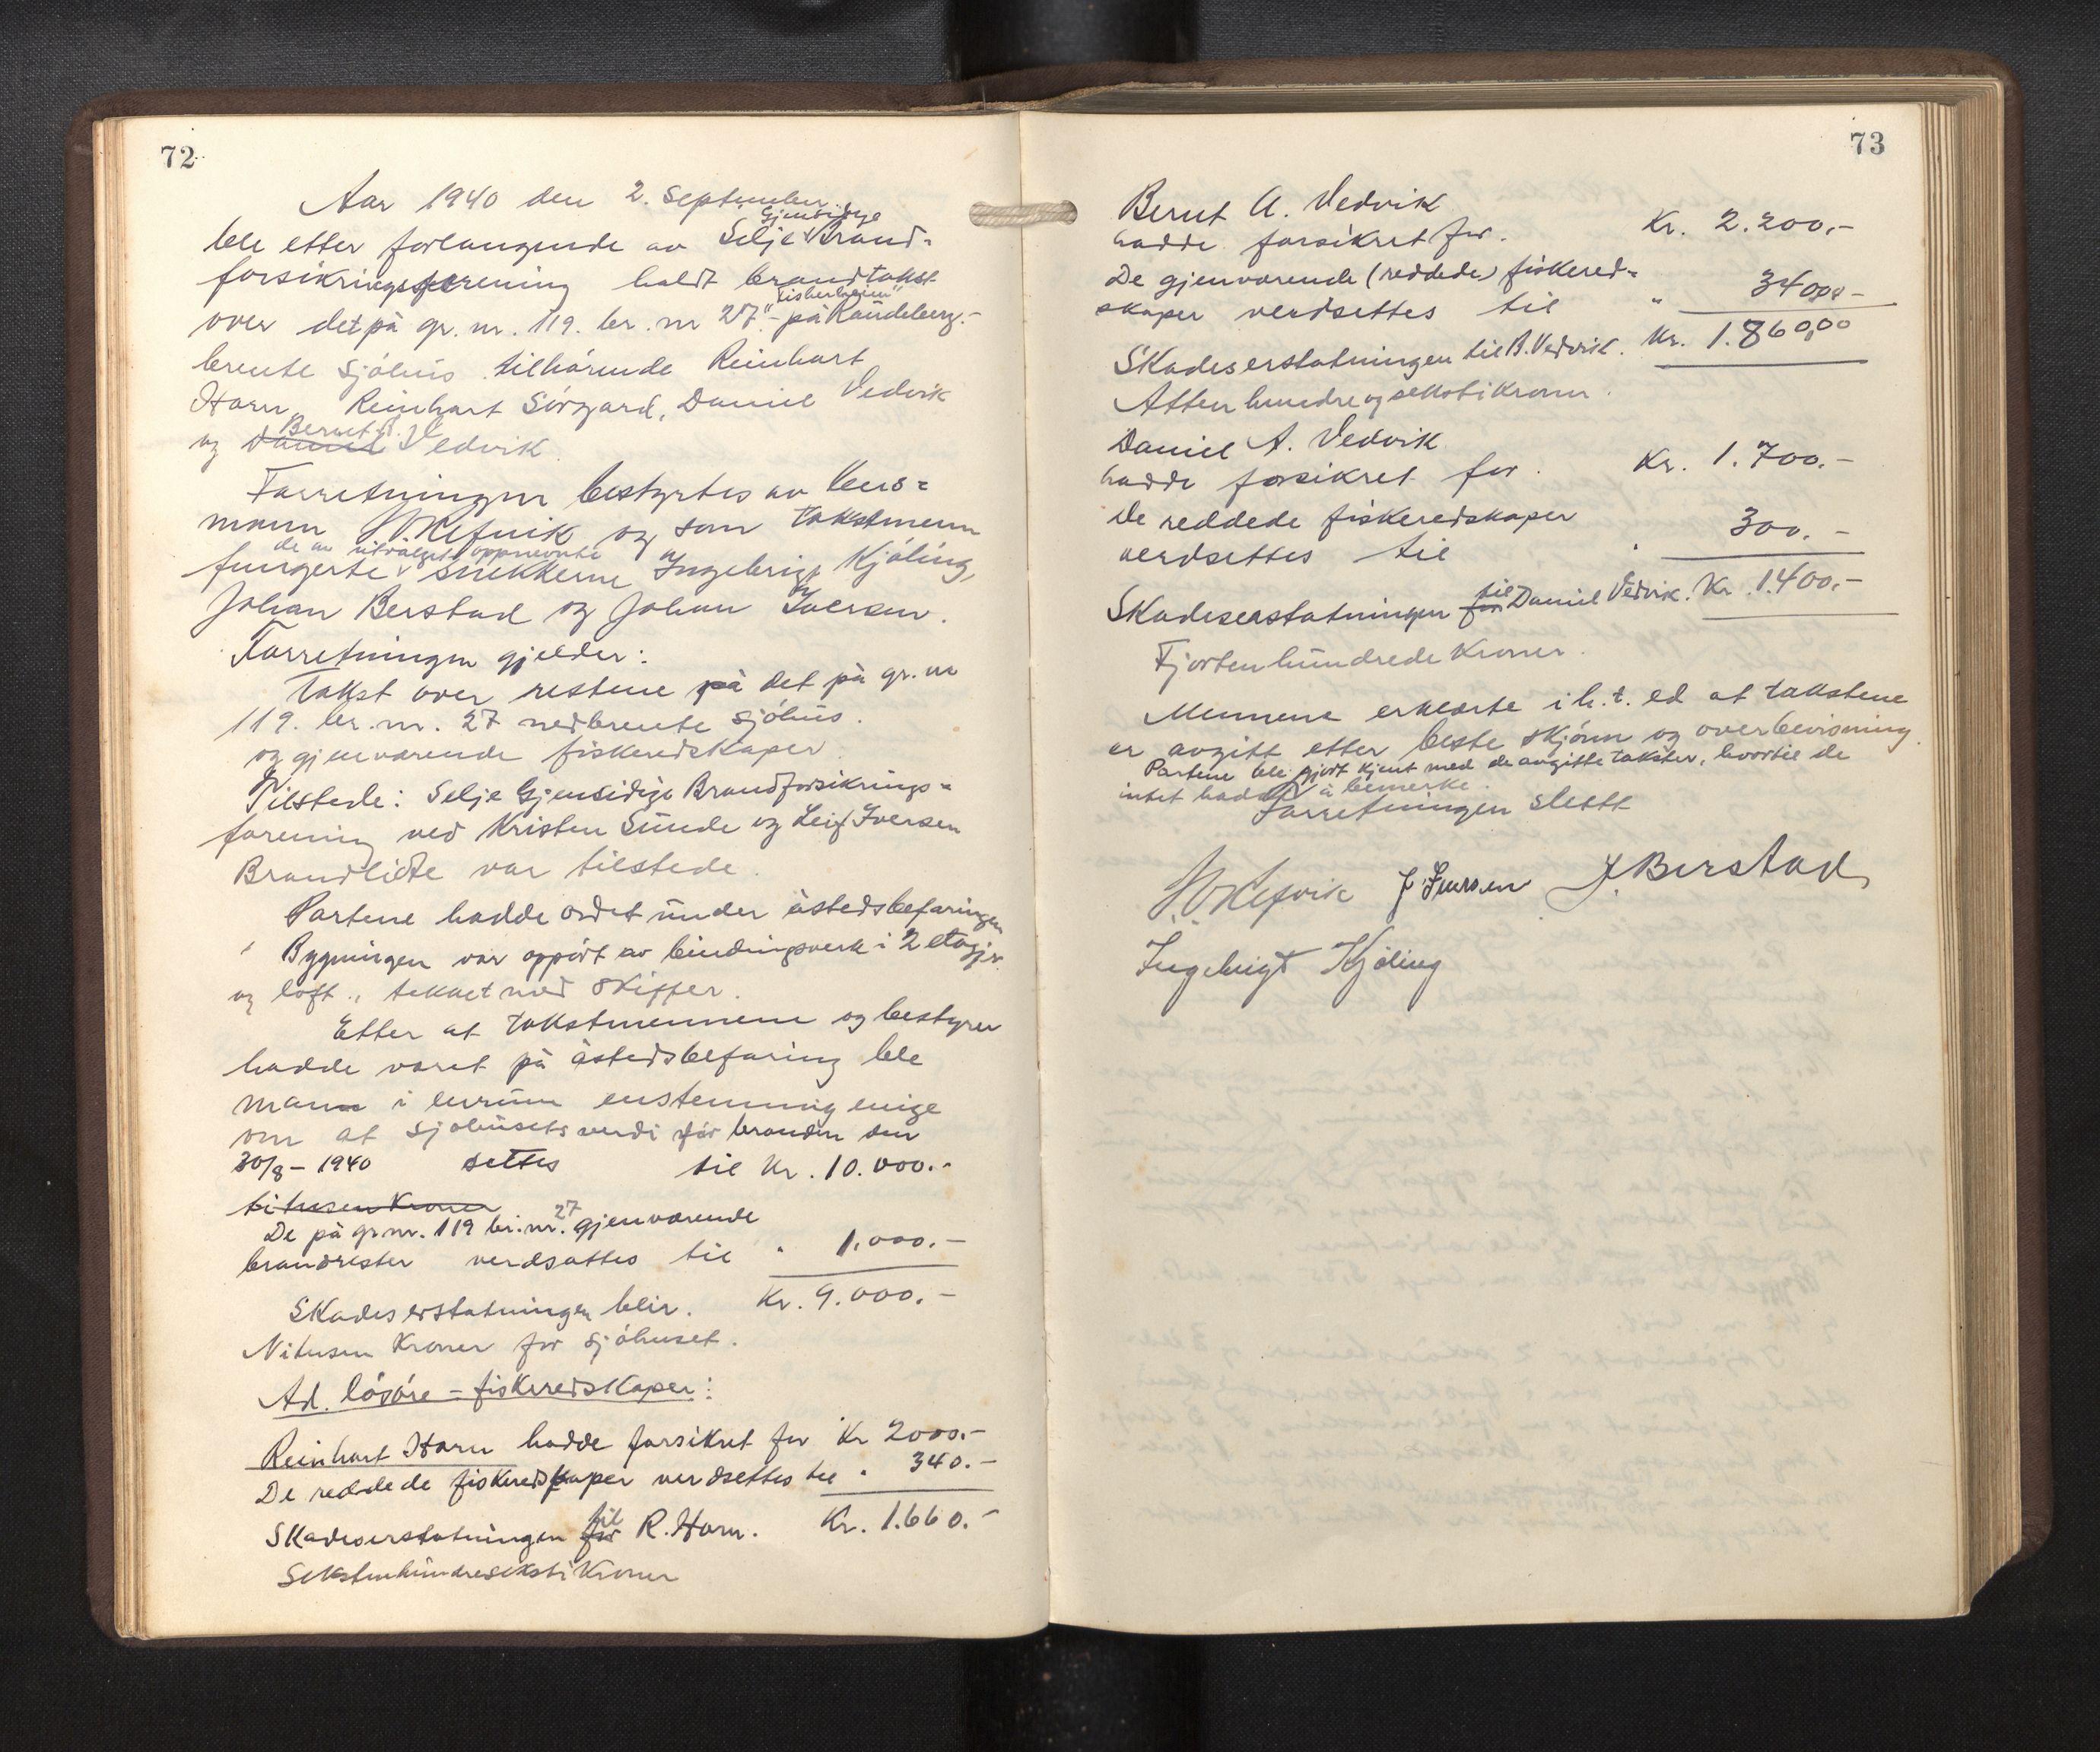 72
Aar 1940 den 2. September
ble etter forlangende av Selje Gjensidige Brand-
forsikringsforening holdt brandtakst
over det på gr. nr. 119. br. nr 27 "Fisherheim" - på Raudeberg.-
brente sjöhus tilhörende Reinhart
Harn, Reinhart Sörgard, Daniel Vedvik
og Daniel Bernt A. Vedvik.
Forretningen bestyrtes av lens-
mann Refvik og som takstmenn
fungerte de av utvalget oppnevnte snekkerne Ingebrigt Kjöling,
Johan Berstad og Johan Iversen.
Forretningen gjelder:
Takst over restene på det på gr. nr
119. br. nr. 27 nedbrente sjöhus.
og gjenværende fiskeredskaper.
Tilstede: Selje Gjensidige Brandforsikrings-
forening ved Kristen Sunde og Leif Iversen
Brandlidte var tilstede.
Partene hadde ordet under åstedsbefaringen
Bygningen var oppört av bindingsverk i 2 etasjer
og loft, tekket med skiffer.
Etter at takstmennene og bestyrer
hadde været på åstedsbefaring ble
mann i enrum enstemmig enige
om at sjöhusets verdi för branden den
30/8 - 1940 settes til Kr. 10.000.-
titusen Kroner
De på gr nr. 119 br. nr. 27 gjenværende
brandrester verdsattes til " 1.000.-
Skadeserstatningen blir. Kr. 9.000.-
Nitusen Kroner for sjöhuset.
Ad. lösöre = fiskeredskaper:
Reinhart Harn hadde forsikret for Kr 2000.-
De reddede fiskeredskaper verdsettes til " 340.-
Skadeserstatningen for til R. Harn. Kr. 1.660.-
Sekstenhundreseksti Kroner
73
Bernt A. Vedvik
hadde forsikret for. Kr. 2.200,-
De gjenværende (reddede) fiskered-
skaper verdsettes til " 340,00 -
Skadeserstatningen til B. Vedvik. Kr. 1.860,00
Atten hundre og seksti kroner.
Daniel A. Vedvik
hadde forsikret for. Kr. 1.700.-
De reddede fiskeredskaper
verdsettes til " 300.-
Skadeserstatningen for til Daniel Vedvik. Kr. 1.400.-
Fjorten hundrede Kroner.
Mennene erklærte i h. t. ed at takstene
er avgitt etter beste skjönn og overbevisning.
Partene ble gjort kjent med de avgitte takster, hvortil de
intet hadde å bemerke.
Forretningen slutt
Refvik J. Iversen J. Berstad
Ingebrigt Kjöling